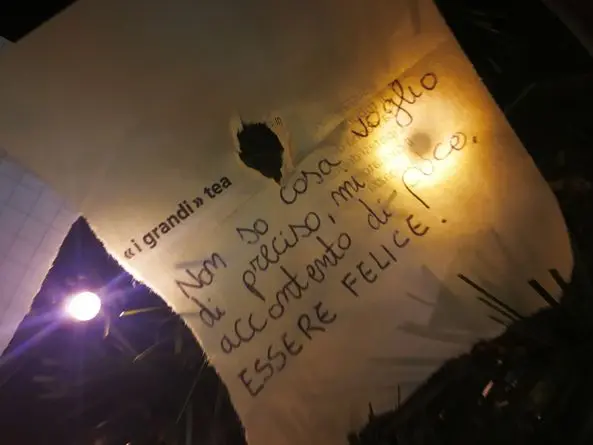 « i grandi » tea
Non so cosa voglio
di preciso, mi
accontento di poco.
ESSERE FELICE!